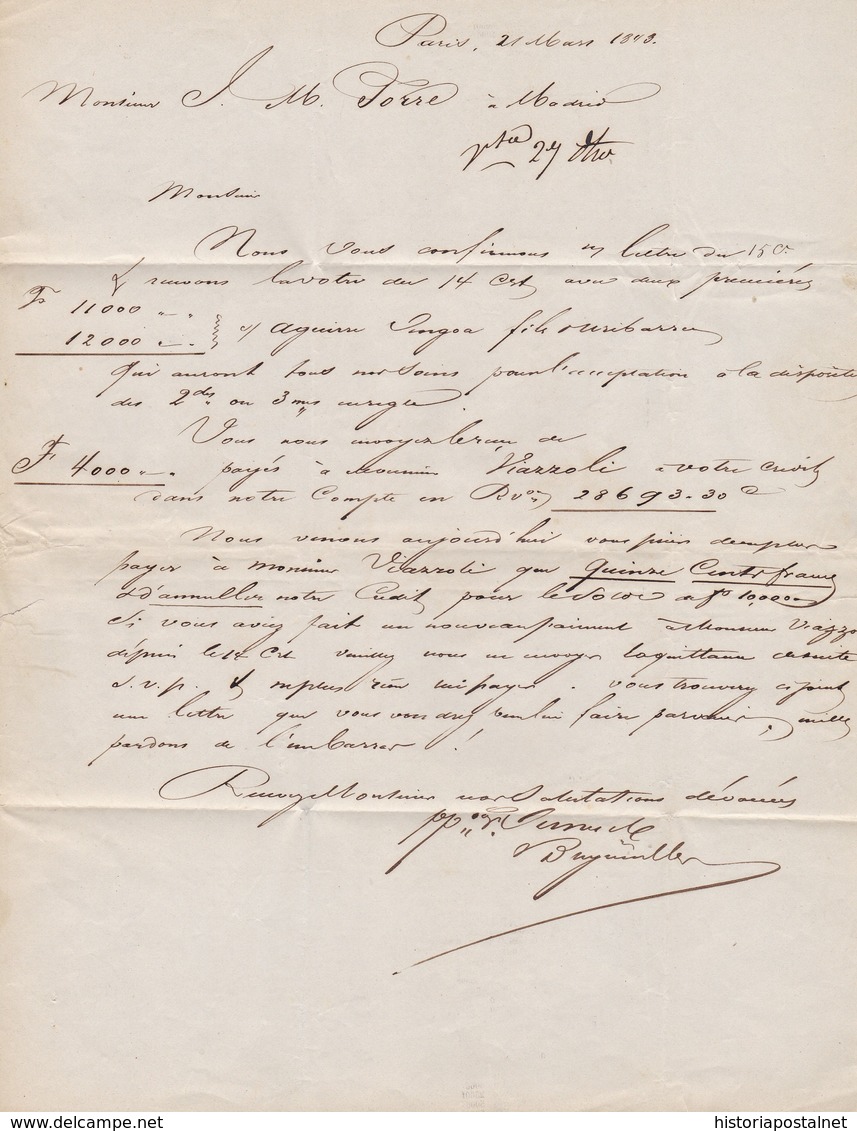 Paris, 21 Mars 1848.
Monsieur J. M. Torre à Madrid
27
Monsieur
Nous vous confirmons n/ lettre du 15 Ct
& recevons la votre du 14 Ct avec deux premières
F 11000 " "
12000 " " s/ Aguirre fils Uribarren
Qui auront tous nos soins pour l'acceptation & la dispon
des 2des ou 3mes en règle.
Vous nous envoyez le reçu de
F 4000 " " payés à Monsieur Viazzoli à votre crédit
dans notre Compte en Rvon 28693-30
Nous venons aujourd'hui vous prier de ne plus
payer à Monsieur Viazzoli que Quinze Cents francs
& d'annuller notre Crédit pour le Solde de F 10,000
Si vous aviez fait un nouveau paiement à Monsieur Viazzo
dépuis le 14 Ct veuillez nous en envoyer la quittance de suite
s.v.p. & ne plus rien lui payer. Vous trouverez ci joint
une lettre que vous voudrez bien lui faire parvenir, mille
pardons de l'embarras!
Recevez Monsieur nos Salutations dévouées
pp
historiapostalnet